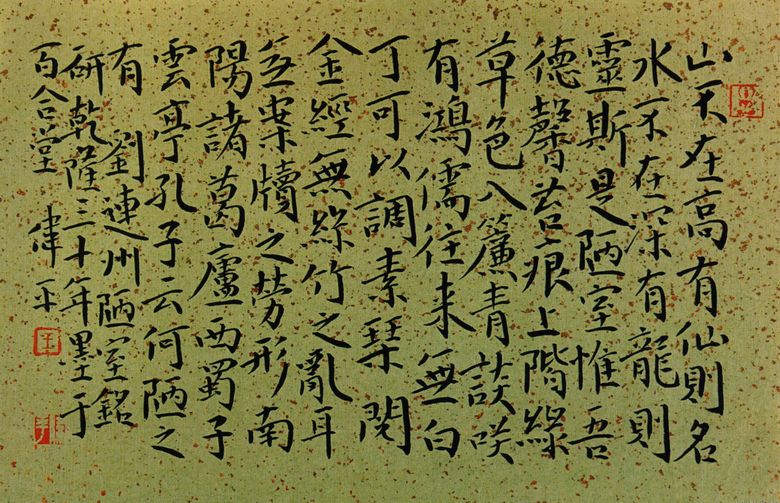 山不在高有仙則名
水不在深有龍則
靈斯是陋室惟吾
德馨苔痕上階綠
草色入簾青談咲
有鴻儒往來無白
丁可以調素琴閱
金經無絲竹之亂耳
無案牘之勞形南
陽諸葛廬西蜀子
雲亭孔子云何陋之
有 劉連州陋室銘
研乾隆三十年墨于
百合堂 平